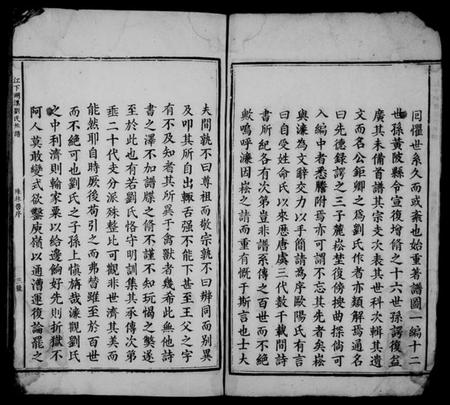 同懼世系久而或紊也始重著譜圖一編十二
世孫黃陂縣令宣復增脩之十六世孫諤復益
廣其未備首譜其宗支次表其世科次輯其遺
文而名公鉅卿之爲劉氏作者亦類解焉適名
曰先德錄諤之三子麓崧埜復傍搜曲採倘可
入編中者悉謄附焉亦可謂不忘其先者矣崧
與濂為文辭交力以手簡請為序歐陽氏有言
曰自受姓命氏以來歷唐虞三代數千載間詩
書所紀各有次第豈非譜系傳之百世而不絕
歟嗚呼濂因崧之請而重有慨于斯言也士大
夫間孰不曰尊祖而敬宗孰不曰辨同而別異
及叩其所自出輙舌强不能下甚至王父之字
有不及知者其所異于禽獸者幾希此無他詩
書之澤不加譜牒之脩不謹不知玩愒之獘遂
至於此也有若劉氏恪守明訓集其承傳次第
垂二十代支分派殊整比可觀非世濟其美而
能然耶自時厥後苟引之而弗替雖至於百世
而不絕可也劉氏之子孫上慎旃哉濂觀劉氏
之中利濟則輸家粟以給邊餉好先則折獄不
阿人莫敢變式欲鑿庾嶺以通漕運復論罷之
江下珊溪劉氏世譜
珠林舊序
三號